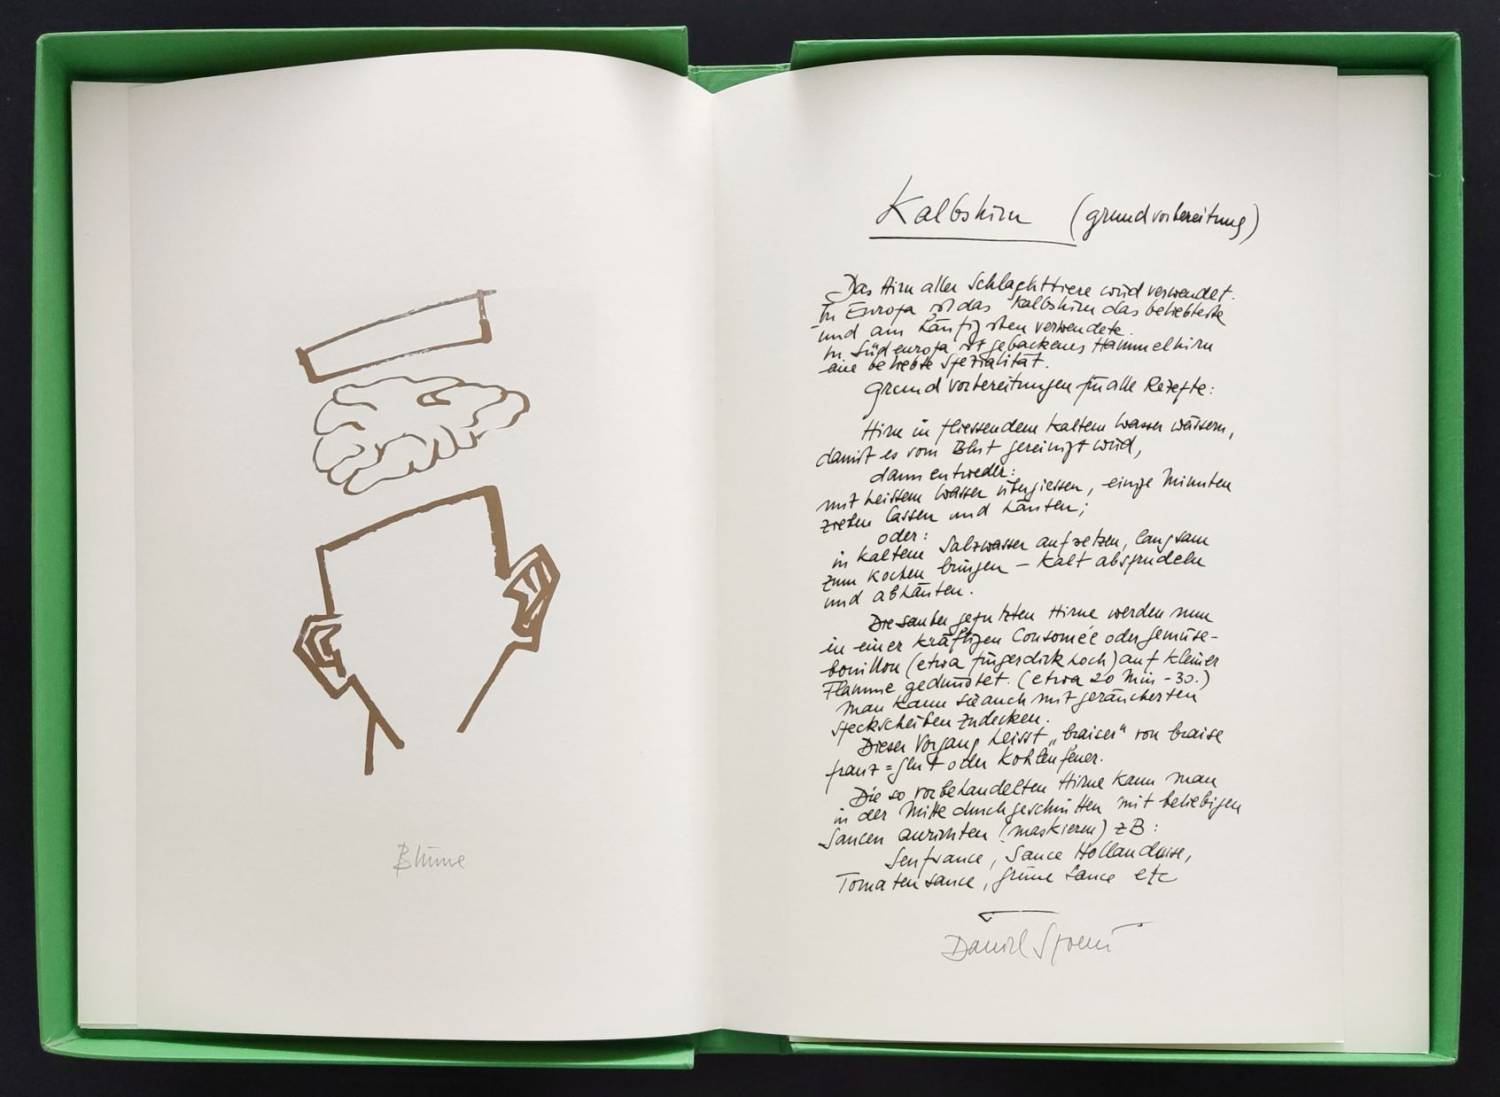 Blume
Kalbshirn (grundvorbereitung)
Das Hirn aller Schlachttiere wird verwendet.
In Europa ist das Kalbshirn das beliebteste
und am häufigsten verwendete.
In Südeuropa ist gebackenes Hammelhirn
eine beliebte Spezialität.
Grundvorbereitungen für alle Rezepte:
Hirn in fliessendem kaltem Wasser wässern,
damit es vom Blut gereinigt wird,
dann entweder:
mit heissem Wasser übergiessen, einige Minuten
ziehen lassen und häuten;
oder:
in kaltem Salzwasser aufsetzen, langsam
zum Kochen bringen – kalt absprudeln
und abhäuten.
Die sauber geputzten Hirne werden nun
in einer kräftigen Consomée oder gemüse-
bouillon (etwa fingerdick hoch) auf kleiner
Flamme gedünstet. (etwa 20 Min - 30.)
Man kann sie auch mit geräucherten
Speckscheiben zudecken.
Dieser Vorgang heisst „braiser" von braise
franz = glut oder Kohlenfeuer.
Die so vorbehandelten Hirne kann man
in der Mitte durchgeschnitten mit beliebigen
Saucen anrichten (maskieren) zB:
Senfsauce, Sauce Hollandaise,
Tomatensauce, grüne Sauce etc
Daniel Spoerri